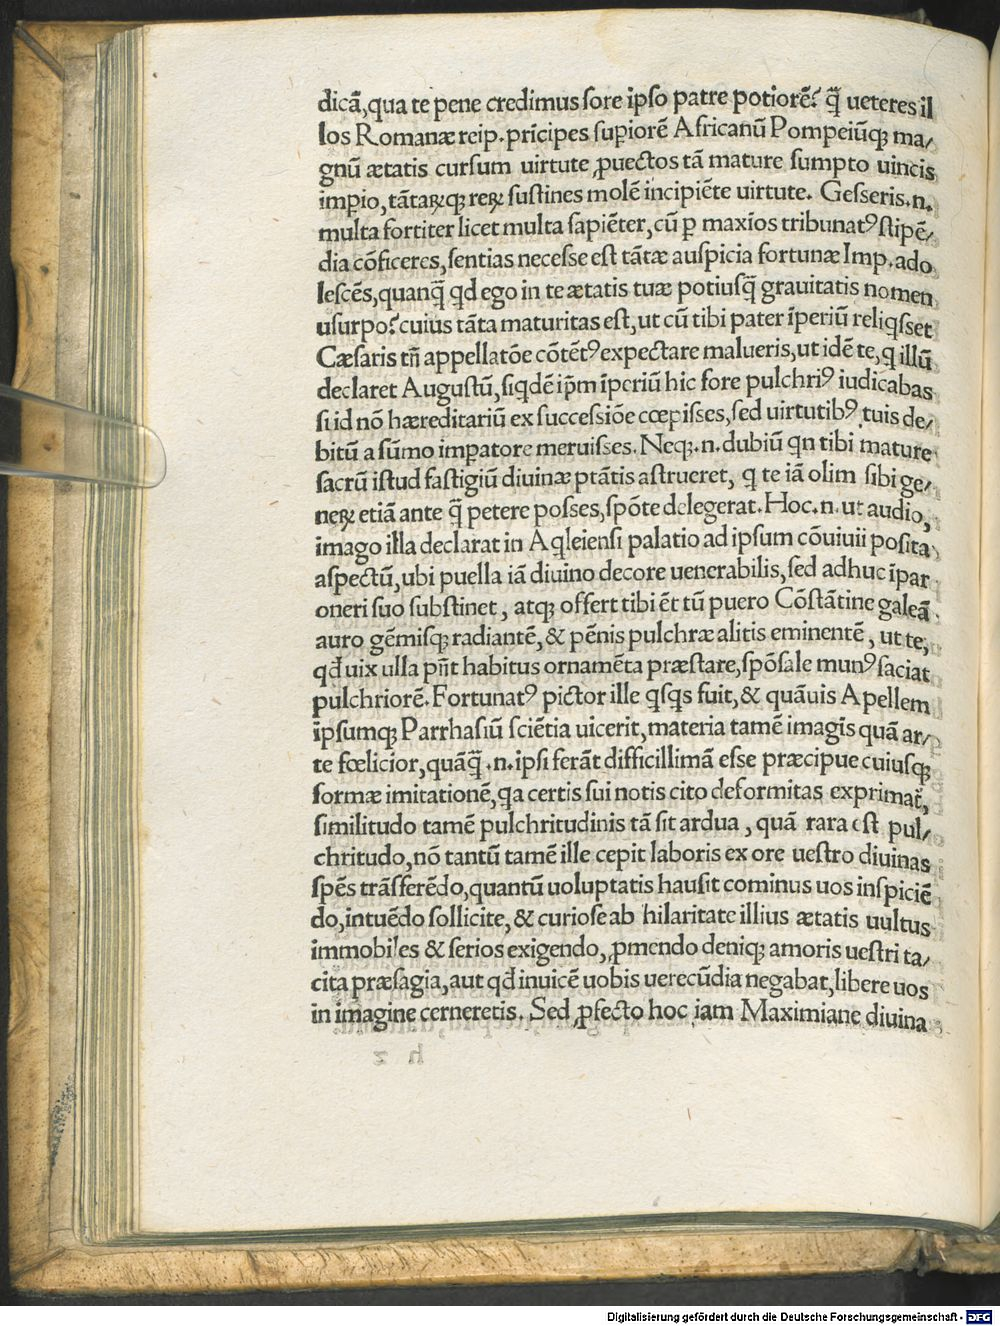 dicā, qua te pene credimus fore ipso patre potiorē? q̄ ueteres il
los Romanæ reip. prīcipes supiorē Africanū Pompeiūq; ma/
gnū ætatis cursum uirtute ꝓuectos tā mature sumpto uincis
imꝑio, tātaꝝq; reꝝ sustines molē incipiēte uirtute. Gesseris .n.
multa fortiter licet multa sapiēter, cū ꝑ maxīos tribunatꝰ stipē/
dia cōficeres, sentias necesse est tātæ auspicia fortunæ Imp. ado
lescēs, quanq̄ qd ego in te ætatis tuæ potiusq̄ grauitatis nomen
usurpo? cuius tāta maturitas est, ut cū tibi pater īperiū reliqsset
Cæsaris tn̄ appellatōe cōtētꝰ expectare malueris, ut idē te, q illū
declaret Augustū, siqdē ip̄m īperiū hic fore pulchriꝰ iudicabas
si id nō hæreditariū ex successiōe cœpisses, sed uirtutibꝰ tuis de/
bitū a sūmo imꝑatore meruisses. Neq; .n. dubiū qn tibi mature
sacrū istud fastigiū diuinæ ptātis astrueret, q te iā olim sibi ge/
neꝝ etiā ante q̄ petere posses, spōte delegerat. Hoc .n. ut audio,
imago illa declarat in Aqleiensi palatio ad ipsum cōuiuii posita
aspectū, ubi puella iā diuino decore uenerabilis, sed adhuc īpar
oneri suo substinet, atq; offert tibi ēt tū puero Cōstātine galeā
auro gēmisq; radiantē, & pēnis pulchræ alitis eminentē, ut te,
qd uix ulla pn̄t habitus ornamēta præstare, spōsale munꝰ faciat
pulchriorē. Fortunatꝰ pictor ille qsqs fuit, & quāuis Apellem
īpsumq; Parrhasiū sciētia uicerit, materia tamē imagīs quā ar/
te fœlicior, quāq̄ .n. ipsi ferāt difficillimā esse præcipue cuiusq;
formæ imitationē, qa certis sui notis cito deformitas exprimat̄,
similitudo tamē pulchritudinis tā sit ardua, quā rara est pul/
chritudo, nō tantū tamē ille cepit laboris ex ore uestro diuinas
spēs trāsferēdo, quantū uoluptatis hausit cominus uos inspiciē
do, intuēdo sollicite, & curiose ab hilaritate illius ætatis uultus
immobiles & serios exigendo, ꝓmendo deniq; amoris uestri ta/
cita præsagia, aut qd inuicē uobis uerecūdia negabat, libere uos
in imagine cerneretis. Sed ꝓfecto hoc iam Maximiane diuina
Digitalisierung gefördert durch die Deutsche Forschungsgemeinschaft - DFG